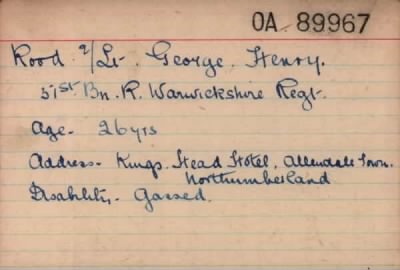 OA 89967
Rood 2/Lt. George Henry.
51st Bn. R. Warwickshire Regt.
Age - 26 yrs
Address - Kings Head Hotel, Allendale Town.
Northumberland
Disability - Gassed.